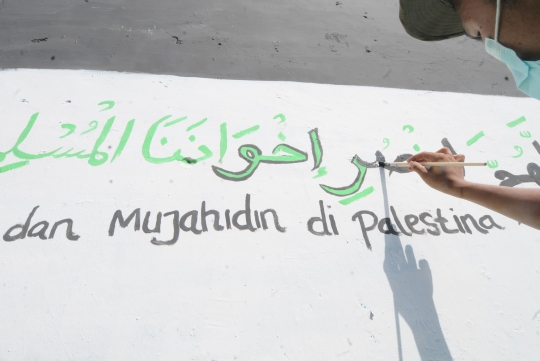 انْصُرْ إخْوَانَنَا المُسْلِمِيـ
dan Mujahidin di Palestina